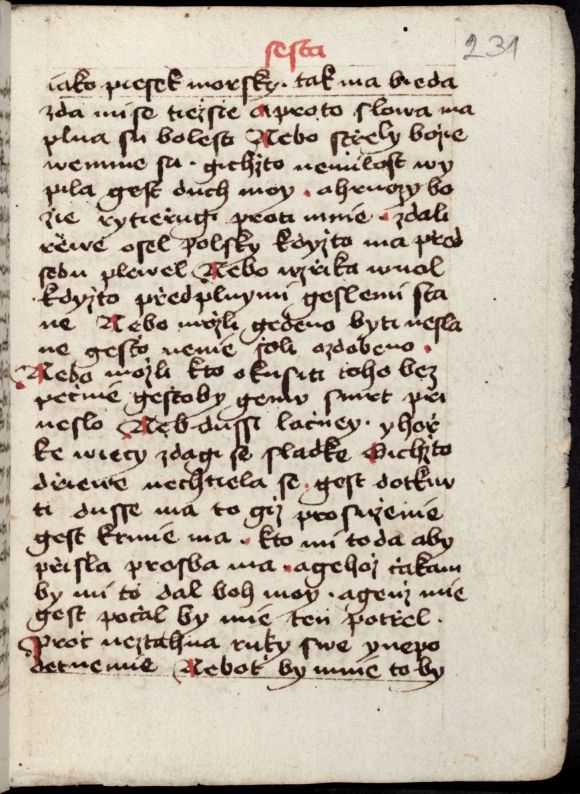 sesta
231
iako piesek morsky. tak ma bieda
zda mi se tiezsie a proto slowa ma
plna su bolesti Nebo střely bozie
we mnie su. gichzto nemilost wy
pila gest duch moy. a hruozy bo
zie rytierugi proti mnie. zdali
rziewe osel polsky kdyzto ma pred
sebu plewel Nebo wzrika wuol
kdyzto pred plnymi geslemi sta
ne Nebo mozli gedeno byti nesla
ne gesto nenie soli ozdobeno.
Nebo mozli kto okusiti toho bez
pecnie gestoby gemu smrt pri
neslo Neb dussi lacney. y hor
ke wiecy zdagi se sladke Gichzto
drziewe nechtiela se. gest dotknu
ti dusse ma to giz pro suzenie
gest krmie ma. kto mi to da aby
prisla prosba ma. a gehoz cakam
by mi to dal boh moy. a genz mie
gest pocal by mie ten potrel.
Proc neztahna ruky swe y nepo
detne mie Nebot by mnie to by